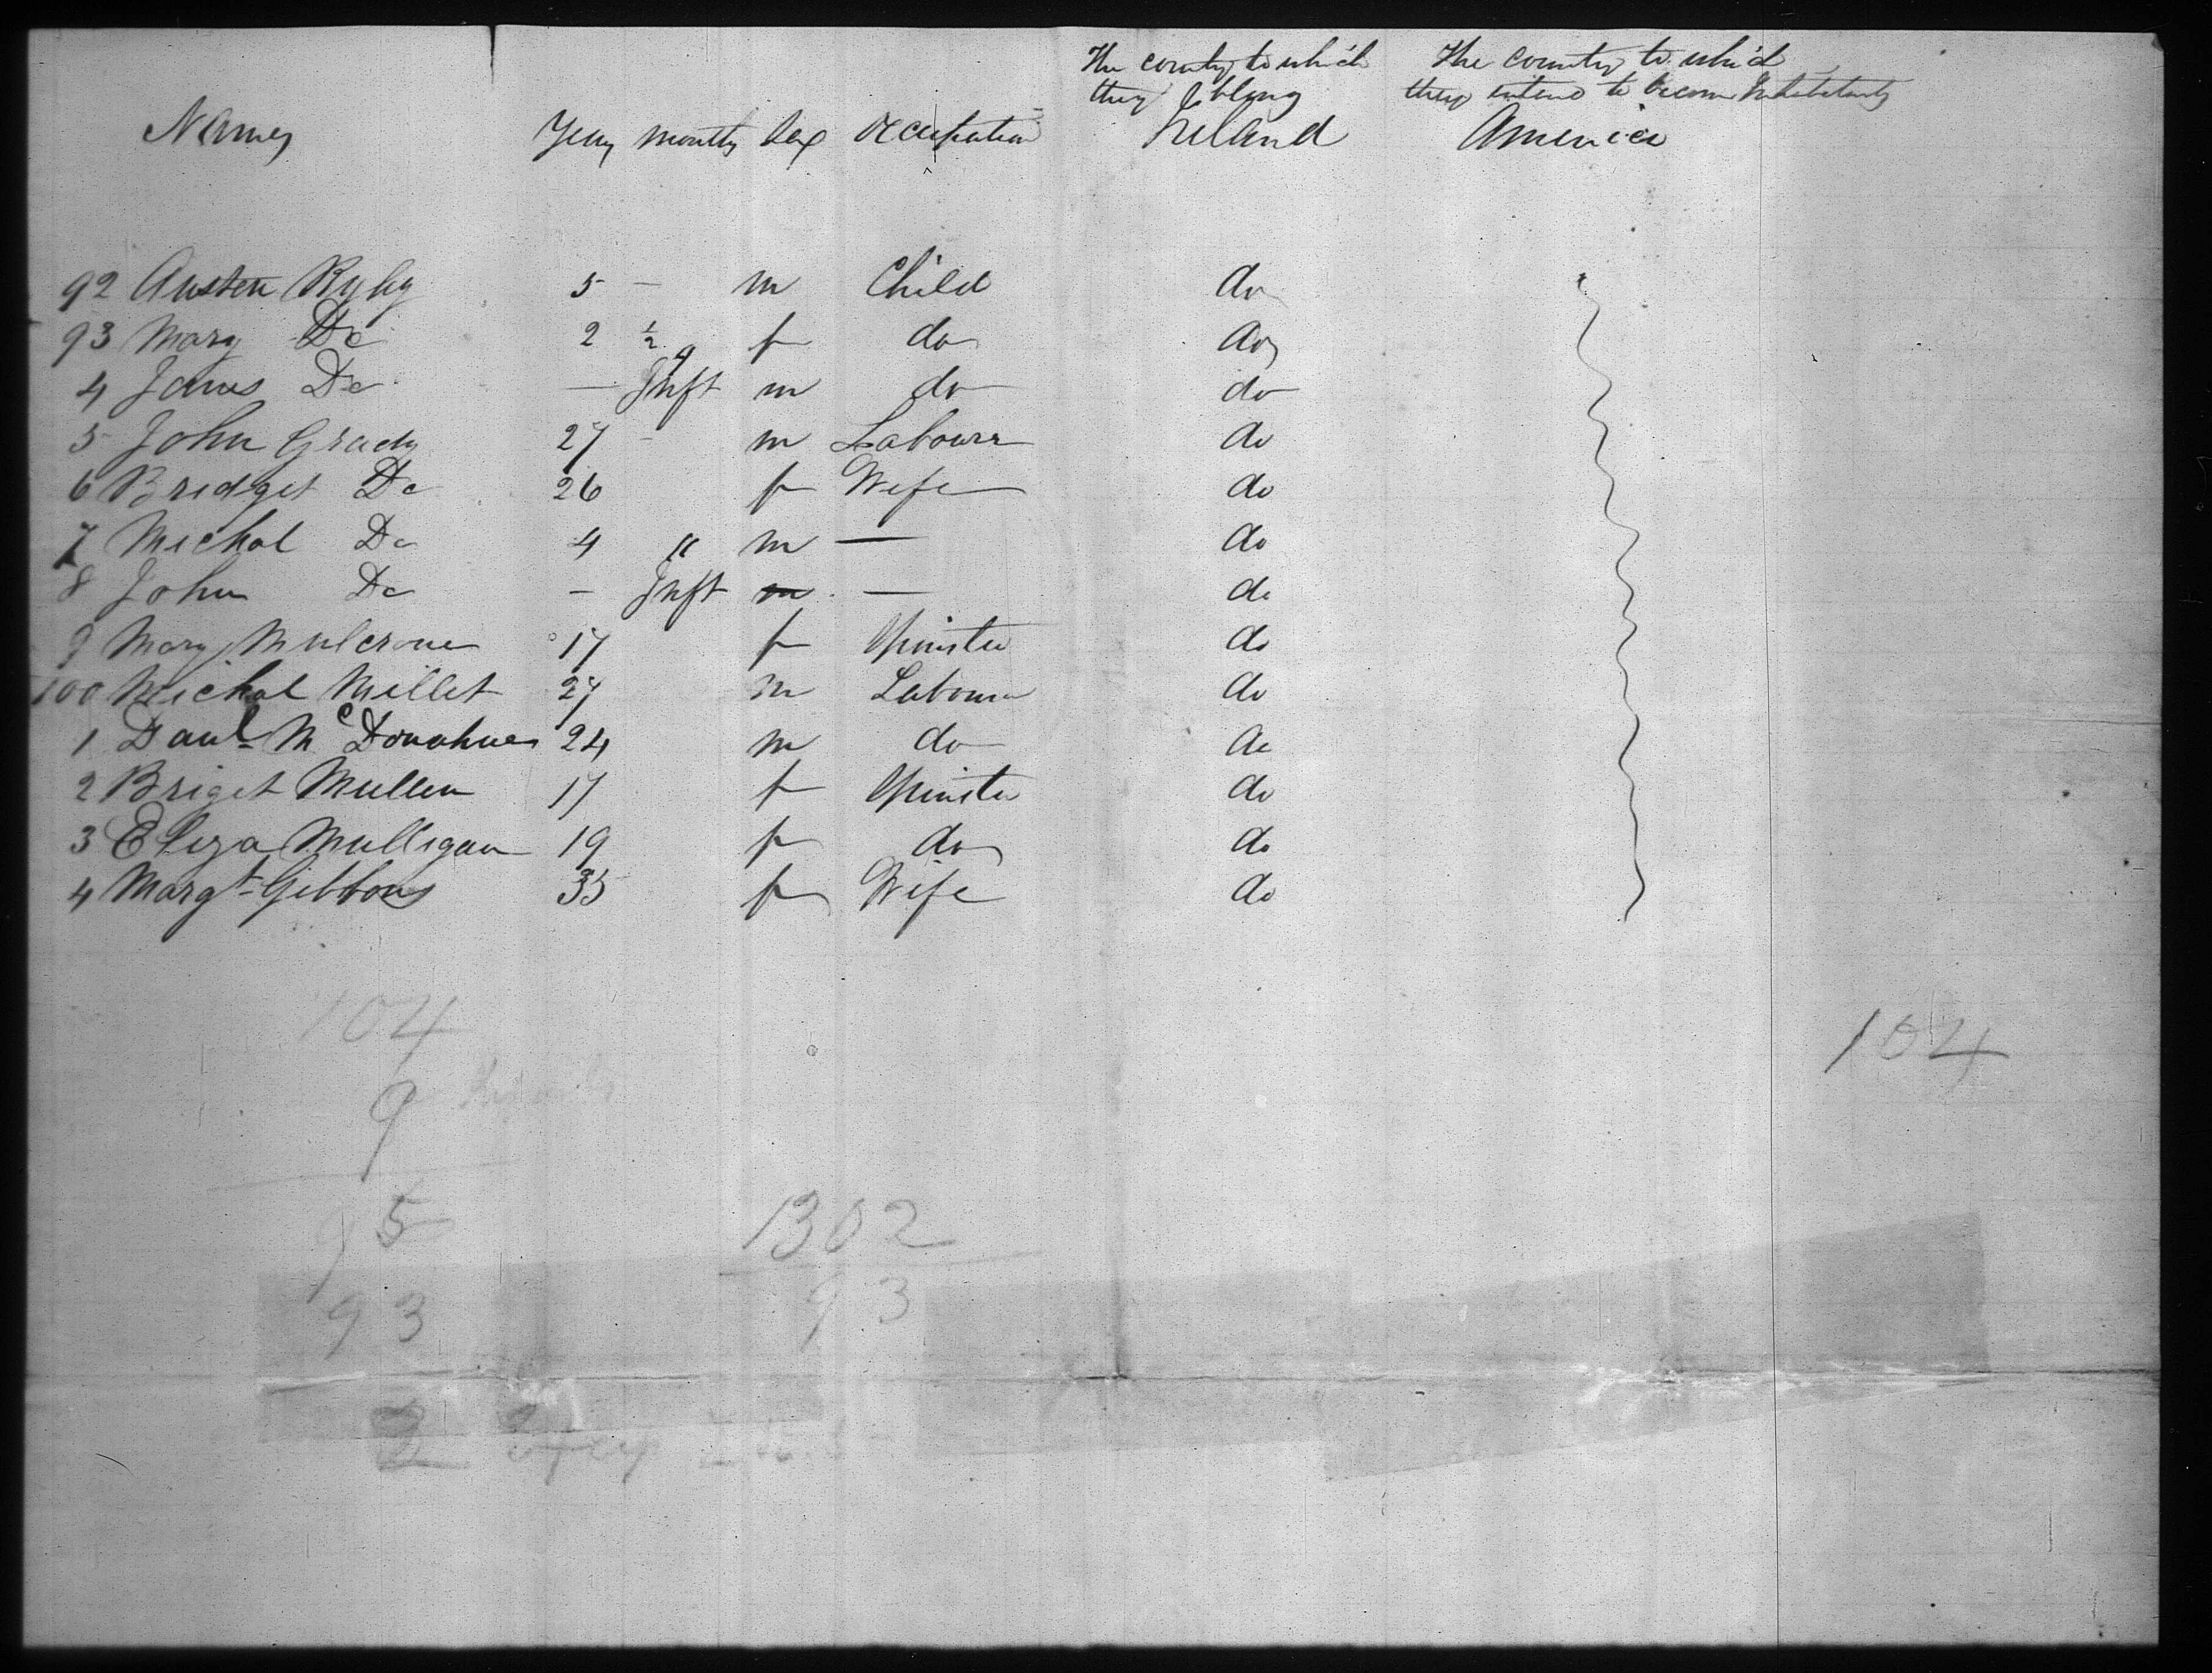 The country to which The country to which
they belong they intend to become Inhabitants
Names Years months Sex Occupation Ireland America
92 Austen 5 - m Child do
93 Mary Do 2 ½ f do do
4 James Do — Inft m do do
5 John Grady 27 - m Labourer do
6 Bridget Do 26 f Wife do
7 Michal Do 4 " m — do
8 John Do - Inft m — do
9 Mary Mulcrone 17 f Spinster do
100 Michal Millet 27 m Labourer do
1 Danl McDonahue 24 m do do
2 Briget Mullen 17 f Spinster do
3 Eliza Mulligan 19 f do do
4 Margt Gibbons 35 f Wife do
104 104
9
95
1302
93 93
2